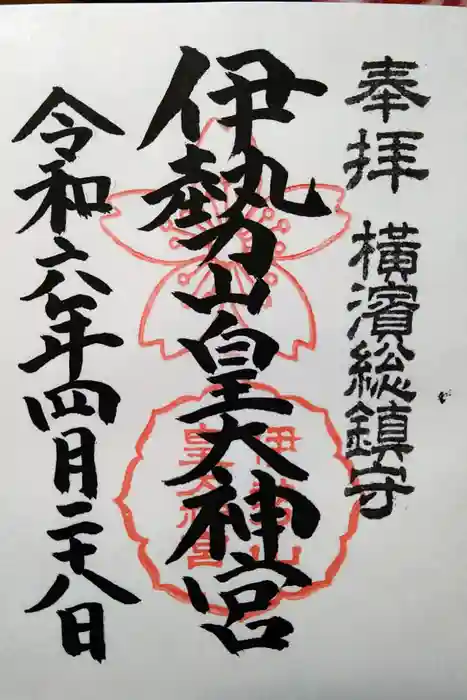 奉拝 橫濱総鎮守
伊勢山皇大神宮
令和六年四月二十八日
伊勢山
皇大神宮